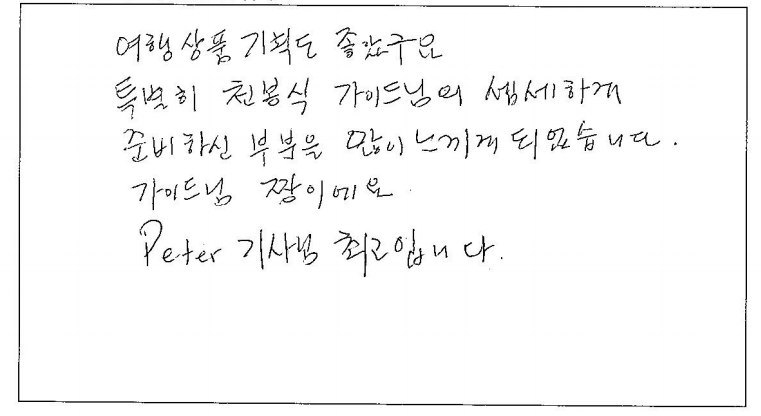 여행상품기획도 좋았구요
특별히 천봉식 가이드님의 셈세하게
준비하신 부분을 많이 느끼게 되었습니다.
가이드님 짱이에요
Peter 기사님 최고입니다.